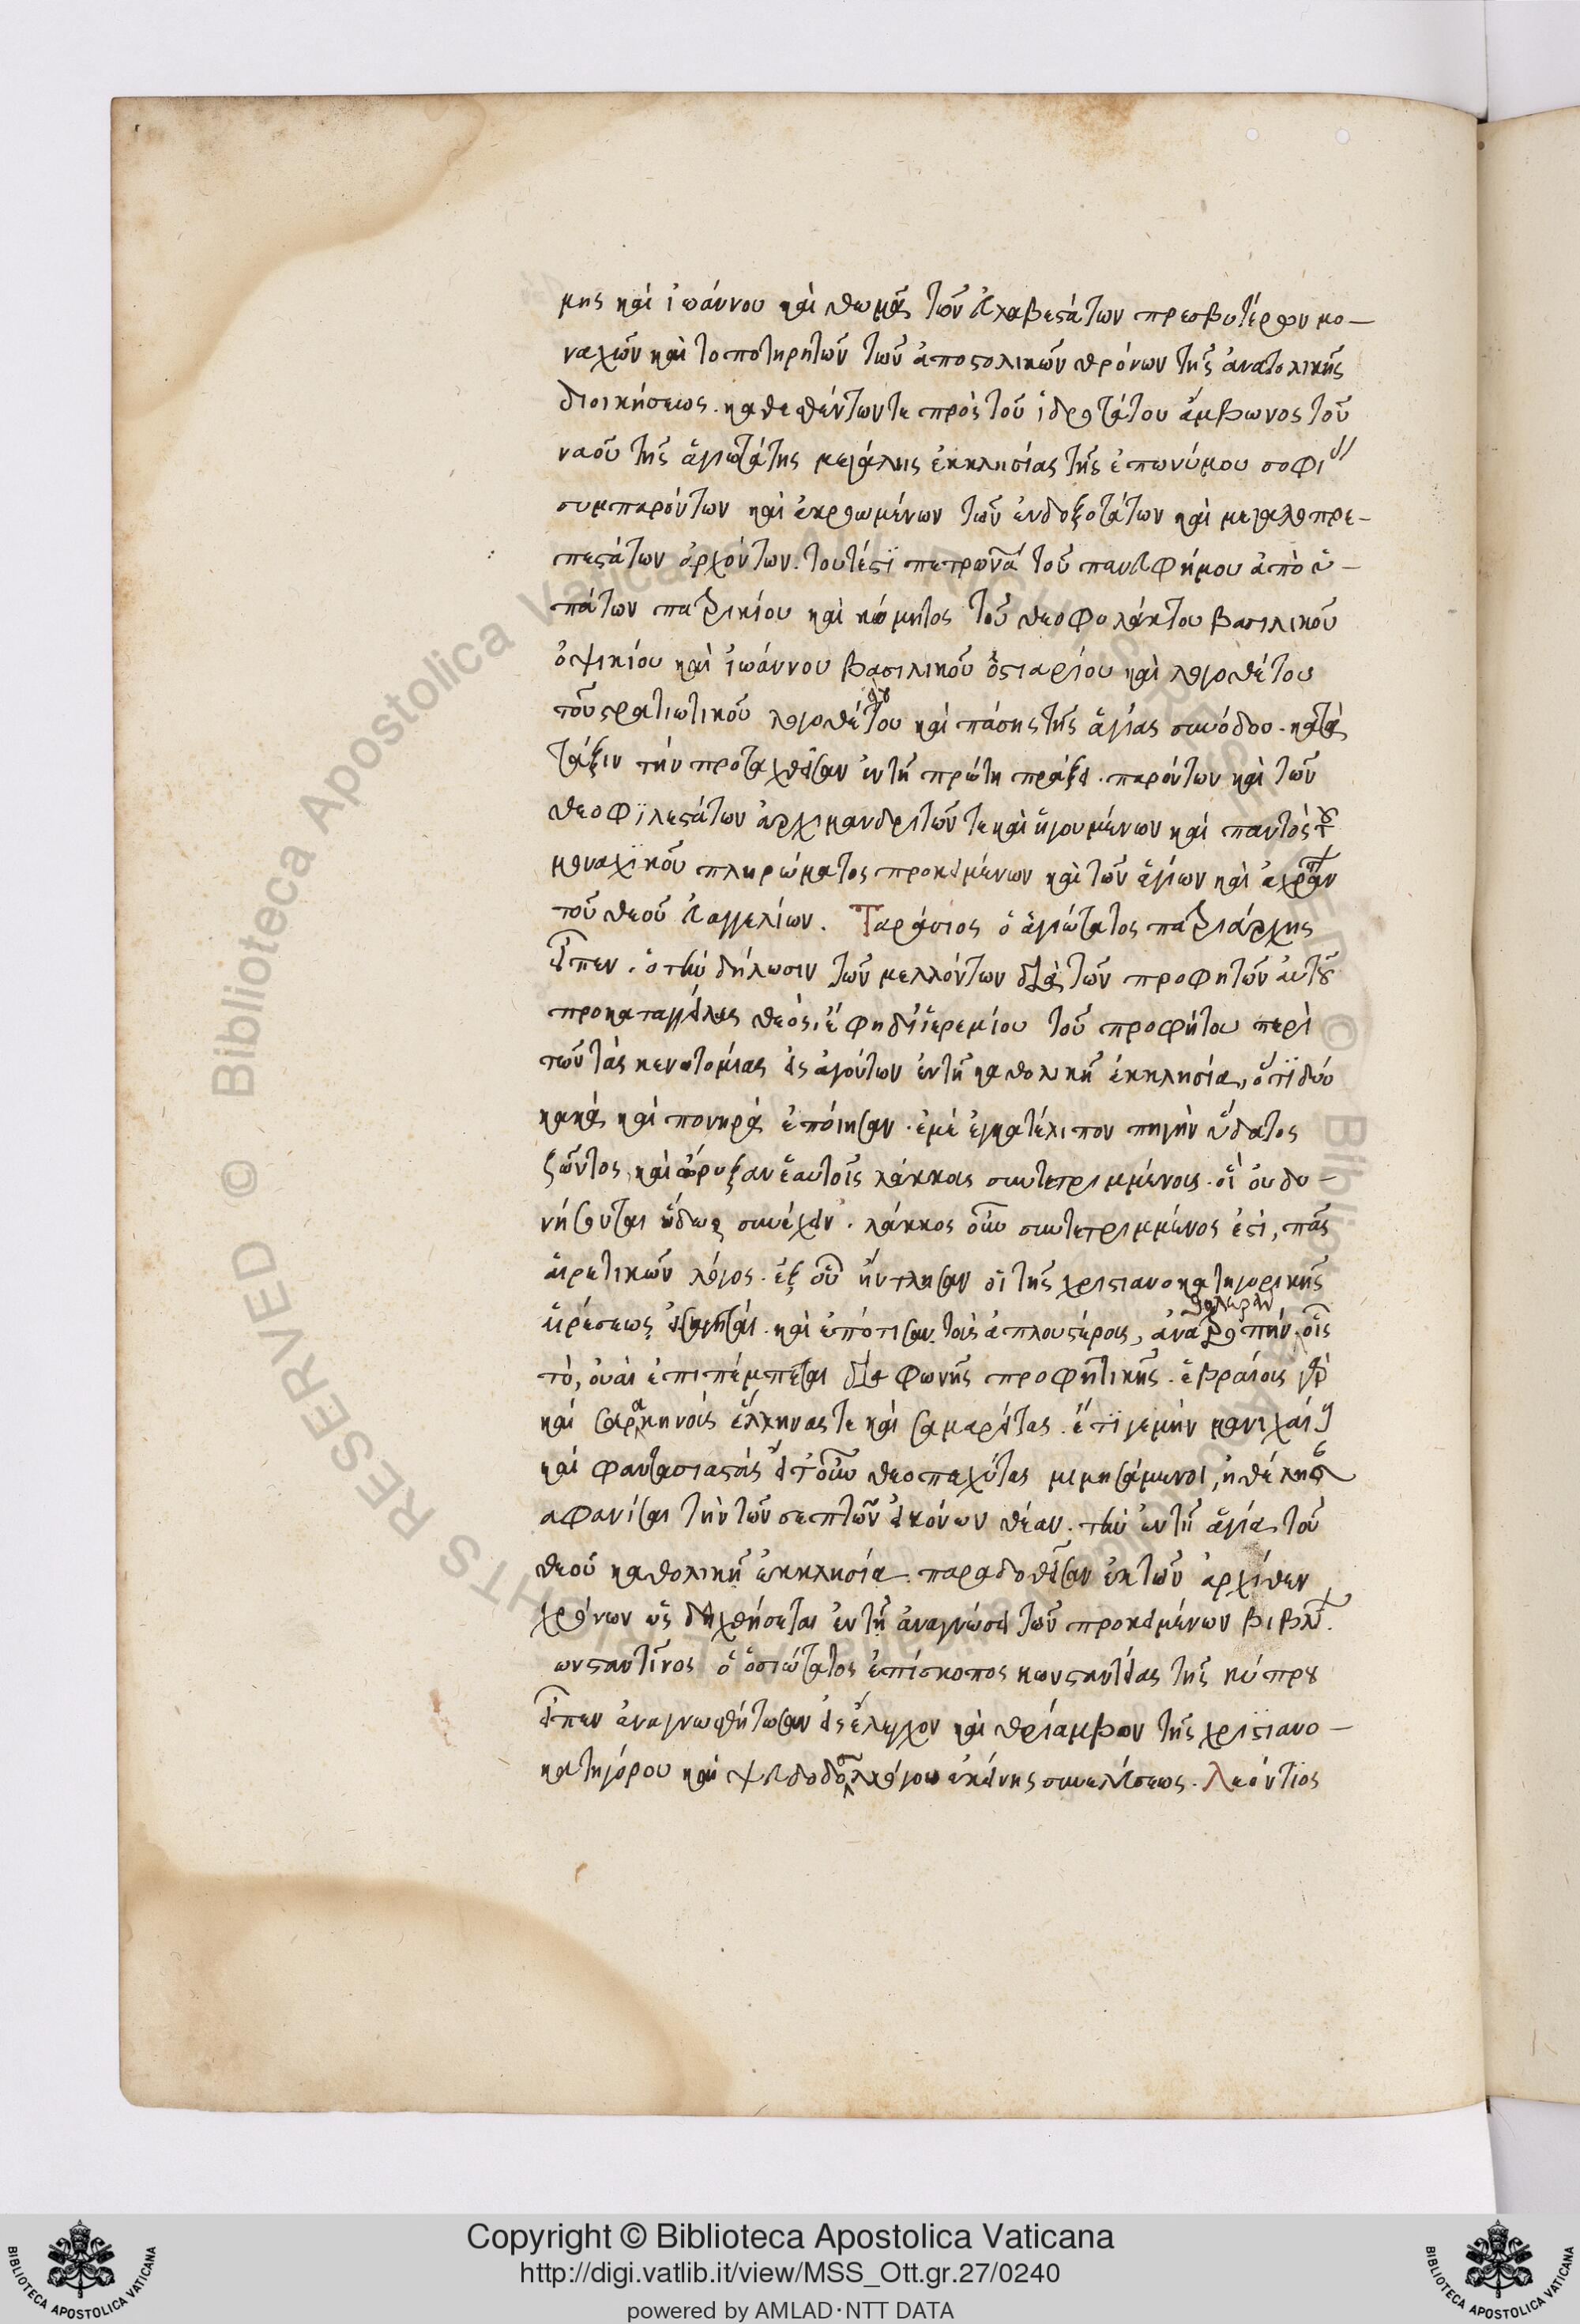 μης καὶ ἰωάννου καὶ θωμᾶ τῶν εὐλαβεστάτων πρεσβυτέρων μο-
ναχῶν καὶ τοποτηρητῶν τῶν ἀποστολικῶν θρόνων τῆς ἀνατολικῆς
διοικήσεως. καθεσθέντων τε πρὸ τοῦ ἱερωτάτου ἄμβωνος τοῦ
ναοῦ τῆς ἁγιωτάτης μεγάλης ἐκκλησίας τῆς ἐπωνύμου σοφί
συμπαρόντων καὶ ἀκροωμένων τῶν ἐνδοξοτάτων καὶ μεγαλοπρε-
πεστάτων ἀρχόντων. τουτέστι πετρωνᾶ τοῦ πανευφήμου ἀπὸ ὑ-
πάτων πατρικίου καὶ κόμητος τοῦ θεοφυλάκτου βασιλικοῦ
ὀψικίου καὶ ἰωάννου βασιλικοῦ ὀστιαρίου καὶ λογοθέτου
τοῦ στρατιωτικοῦ λογοθέτου καὶ πάσης τῆς ἁγίας συνόδου. κατὰ
τάξιν τὴν προταχθεῖσαν ἐν τῇ πρώτη πράξει. παρόντων καὶ τῶν
θεοφιλεστάτων ἀρχιμανδριτῶν τε καὶ ἡγουμένων καὶ παντὸς τοῦ
μοναχικοῦ πληρώματος προκειμένων καὶ τῶν ἁγίων καὶ ἀχράν
τοῦ θεοῦ εὐαγγελίων. Ταράσιος ὁ ἁγιώτατος πατριάρχης
εἶπεν. ὁ τὴν δήλωσιν τῶν μελλόντων διὰ τῶν προφητῶν αὐτοῦ
προκαταγγείλας θεός, ἔφη δι' ἱερεμίου τοῦ προφήτου περὶ
τῶν τὰς κενοτομίας εἰσαγόντων ἐν τῇ καθολικῇ ἐκκλησία, ὅτι δύο
κακὰ καὶ πονηρὰ ἐποίησαν. ἐμὲ ἐγκατέλιπον πηγὴν ὕδατος
ζῶντος, καὶ ὤρυξαν ἑαυτοῖς λάκκους συντετριμμένους. οἳ οὐ δυ-
νήσονται ὕδωρ συνέχειν. λάκκος οὖν συντετριμμένος ἐστὶ, πᾶς
αἱρετικῶν λόγος. ἐξ οὗ ἤντλησαν οἱ τῆς χριστιανοκατηγορικῆς
αἱρέσεως εἰσηγηταί. καὶ ἐπότισαν τοὺς ἁπλουστέρους, ἀνατροπὴν θολεράν. οἷς
τὸ, οὐαὶ ἐπιπέμπεται διὰ φωνῆς προφητικῆς. ἑβραίους γὰρ
καὶ σαρακηνοὺς ἕλληνας τε καὶ σαμαρείτας. ἔτι γε μὴν μανιχαίους
καὶ φαντασιαστὰς εἴτουν θεοπασχίτας μιμησάμενοι, ἠθέλησαν
ἀφανίσαι τὴν τῶν σεπτῶν εἰκόνων θέαν. τὴν ἐν τῇ ἁγία τοῦ
θεοῦ καθολικῇ ἐκκλησία. παραδοθεῖσαν ἐκ τῶν ἀρχῆθεν
χρόνων ὡς δειχθήσεται ἐν τῇ ἀναγνώσει τῶν προκειμένων βιβλ.
ωνσταντῖνος ὁ ὁσιώτατος ἐπίσκοπος κωνσταντείας τῆς κύπρου
εἶπεν ἀναγνωσθήτωσαν εἰς ἔλεγχον καὶ θρίαμβον τῆς χριστιανο-
κατηγόρου καὶ ψευδοσυλλόγου ἐκείνης συνελεύσεως. Λεόντιος